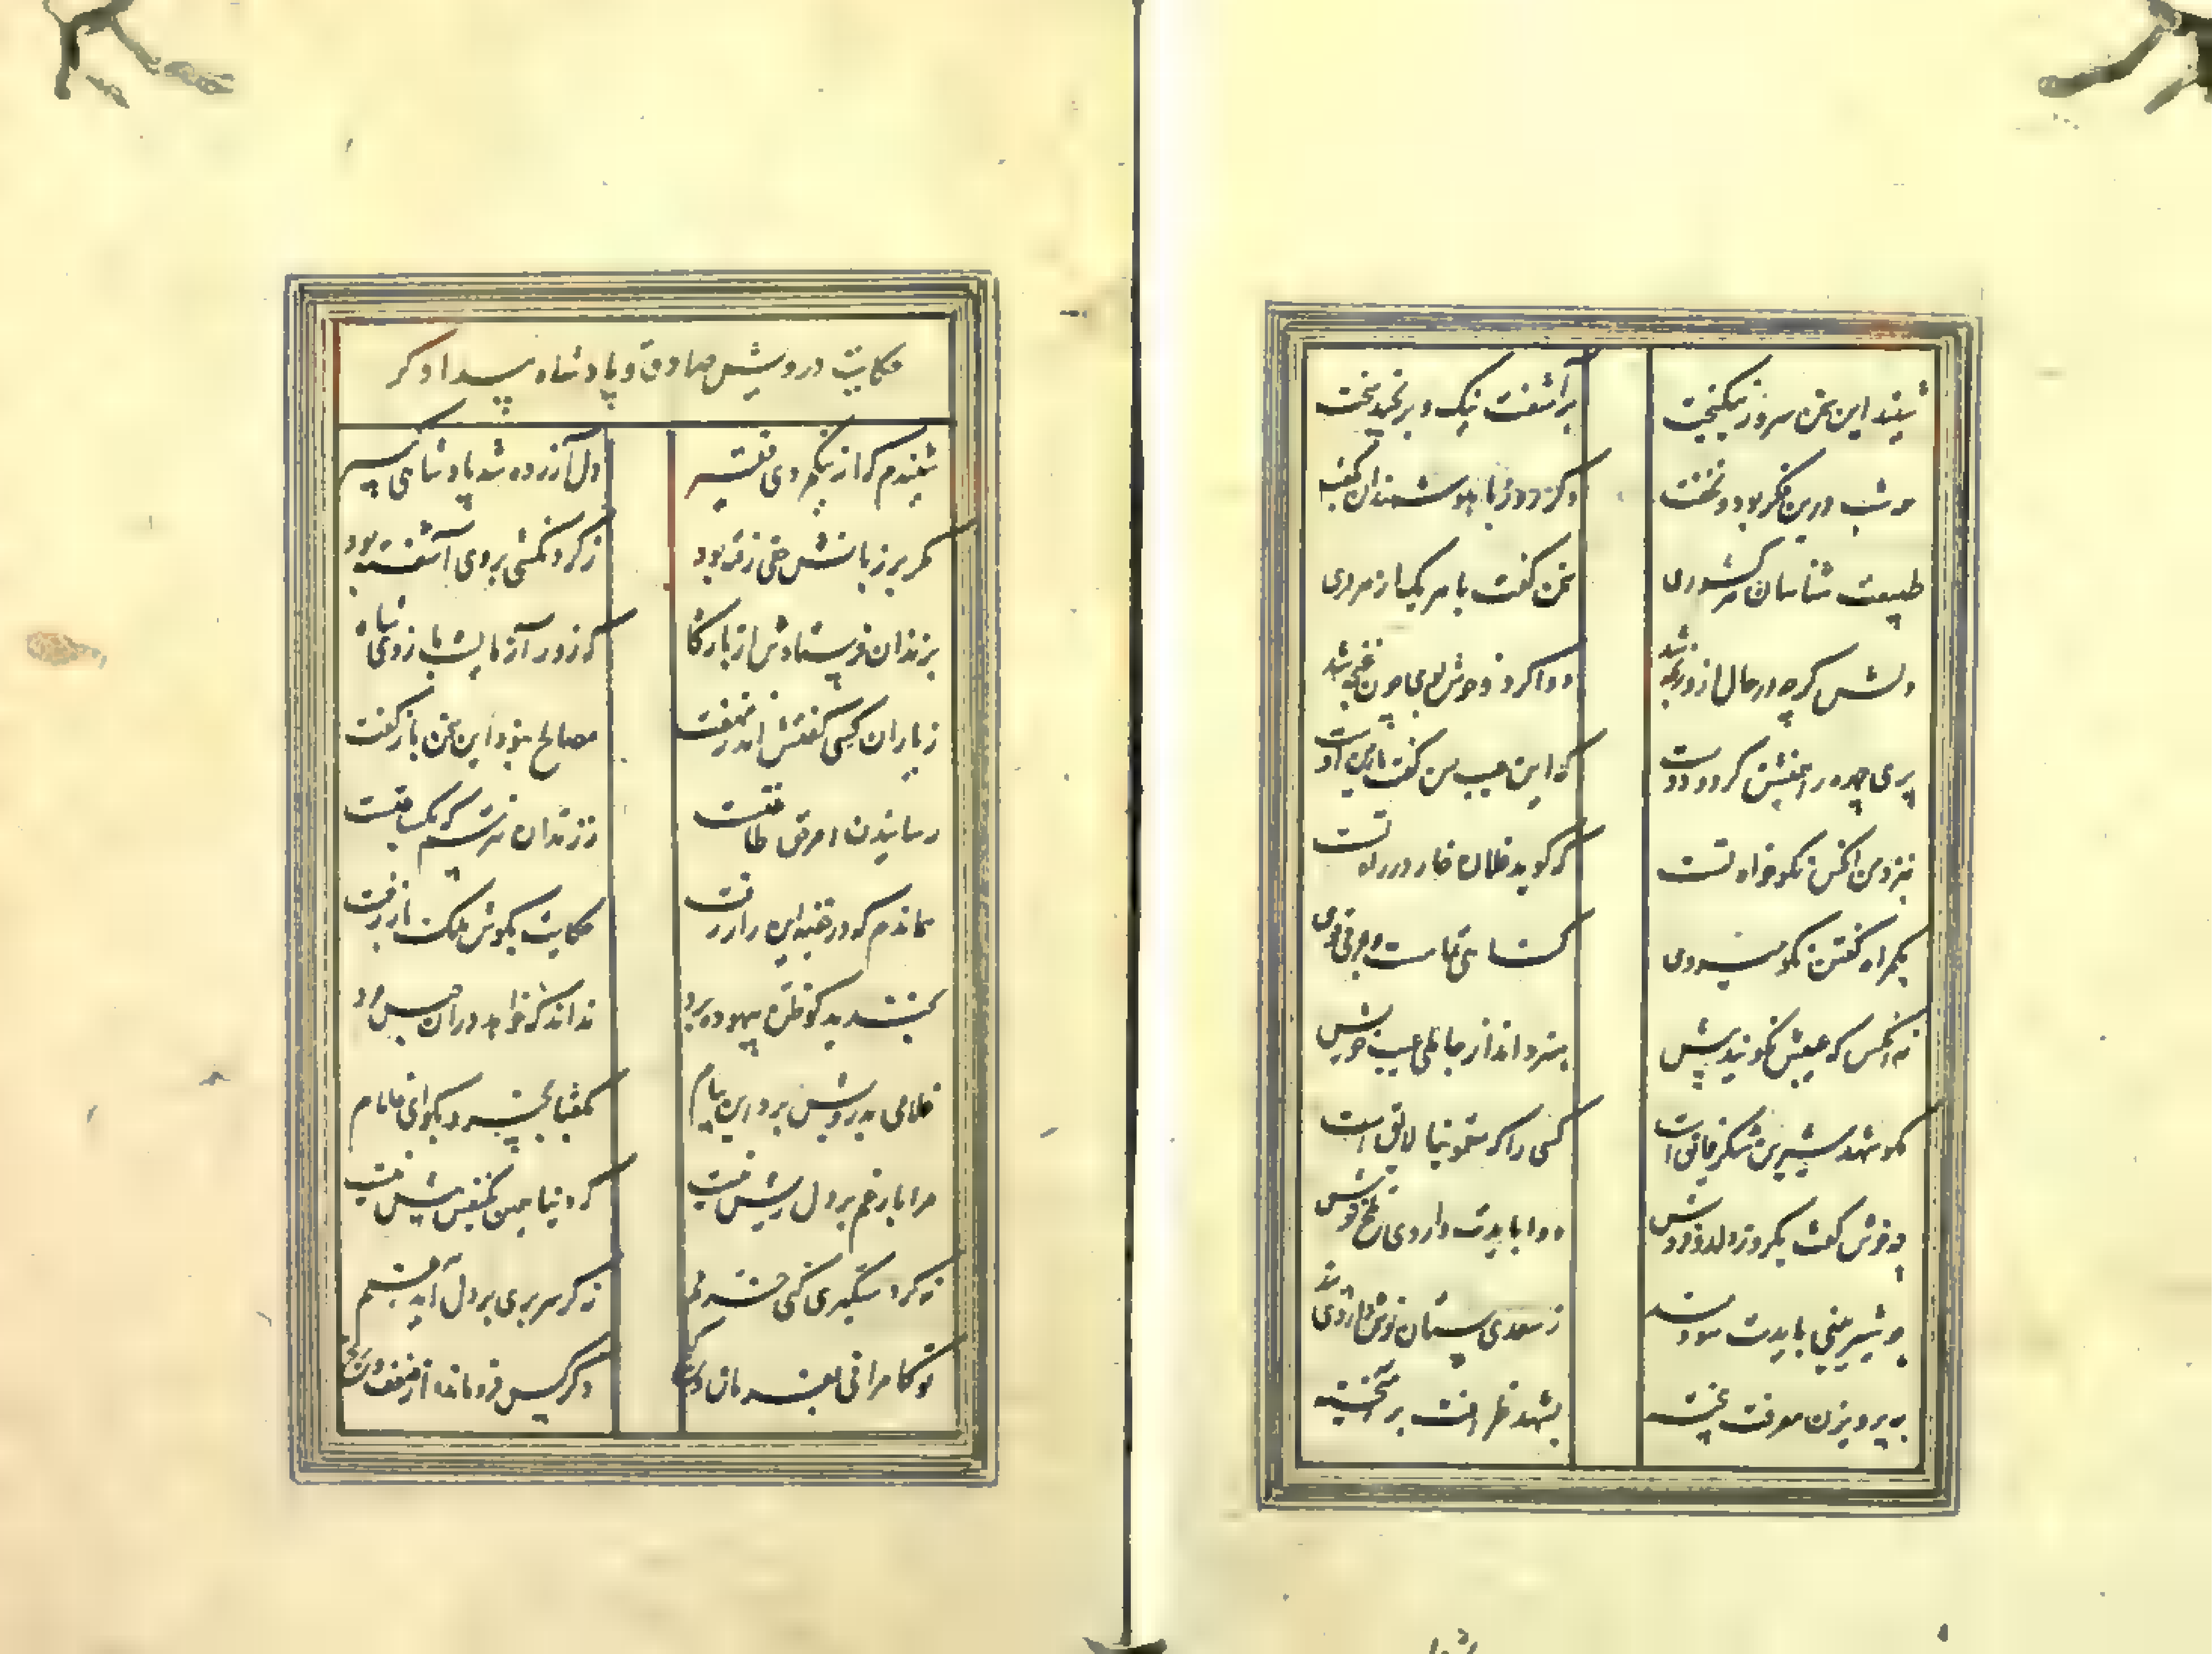 شنید این سخن سرور نیکبخت برآشفت نیک و برنجید سخت
همه شب درین فکر بود و نخفت دگر روز با هوشمندان بگفت
طبیعت شناسان هر کشوری سخن گفت با هر یک از هر دری
دلش گرچه در حال ازو رنجه شد دوا کرد و خوش بوی چون غنچه شد
پری چهره را همنشین کرد و دوست که این عیب من گفت یار من اوست
بنزد من آنکس نکوخواه تست که گوید فلان خار در راه تست
بگمراه گفتن نکو میروی گناهی تمامست و جرمی قوی
هر آنکس که عیبش نگویند پیش هنر داند از جاهلی عیب خویش
مگو شهد شیرین شکر فایق است کسی را که سقمونیا لایق است
چه خوش گفت یکروز دارو فروش شفا بایدت داروی تلخ نوش
چو شربتی بایدت سودمند ز سعدی ستان نوش داروی پند
به پرویزن معرفت بیخته بشهد ظرافت برآمیخته
حکایت درویش صادق و پادشاه بیدادگر
شنیدم که از نیکمردی فقیر دل آزرده شد پادشاهی کبیر
مگر بر زبانش حقی رفته بود ز گردنکشی بر وی آشفته بود
بزندان فرستادش از بارگاه که زورآزمایست بازوی شاه
ز یاران کسی گفتش اندر نهفت مصالح نبود این سخن باز گفت
رسانیدن امر حق طاعتست ز زندان نترسم که یک ساعتست
هماندم که در خفیه این راز رفت حکایت بگوش ملک باز رفت
بخندید کو ظن بیهوده برد نداند که خواهد در آن حبس مرد
غلامی بدرویش برد این پیام بگفتا بخسرو بگو ای غلام
مرا بار غم بر دل ریش نیست که دنیا همین ساعتی بیش نیست
نه گر دستگیری کنی خرمم نه گر سر بری بر دل آید غمم
تو گر کامرانی بفرمان و گنج دگر کس فرومانده از ضعف و رنج